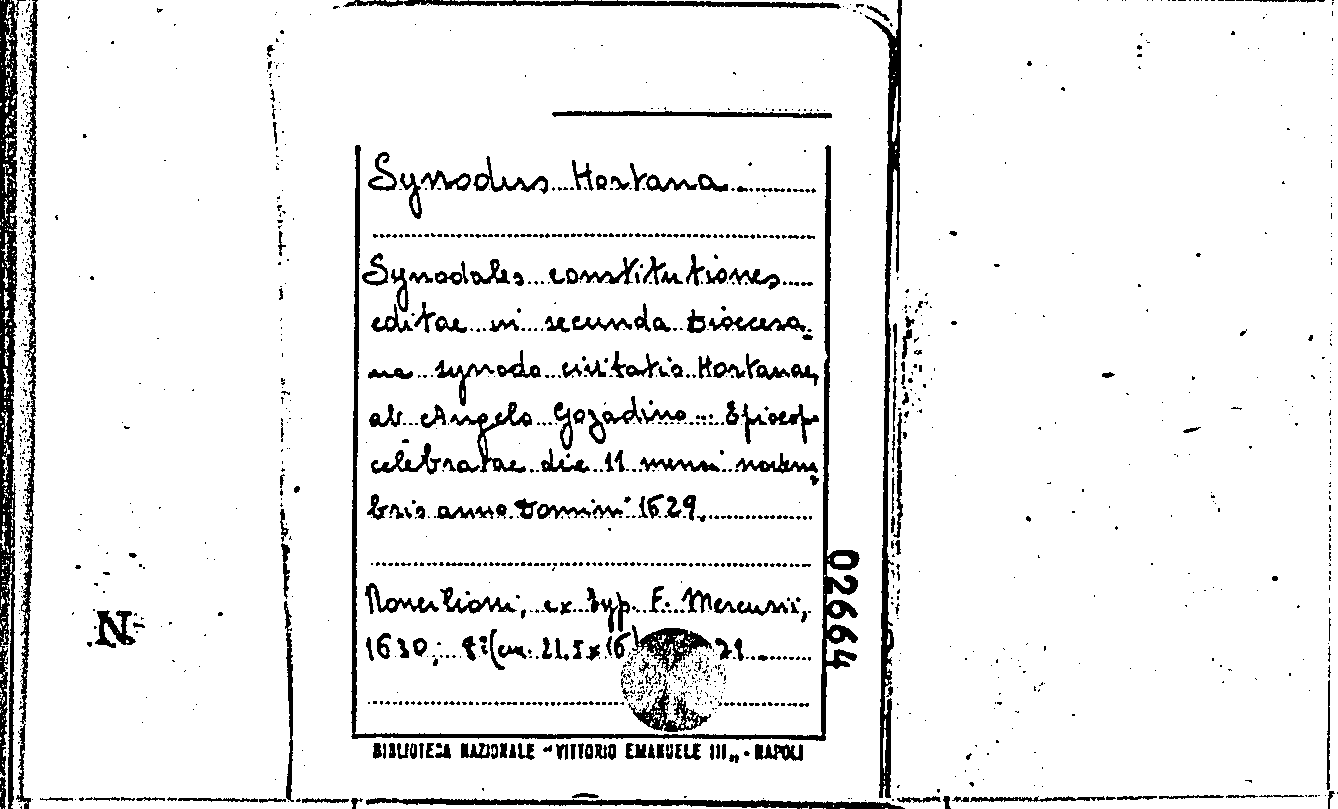 Synodus Hortana
Synodales constitutiones
editae in secunda Dioecesa-
na synodo civitatis Hortanae,
ab Angelo Gozadino ... Episcop
celebratae die 11 mensi novem-
bris anno Domini 1629.
Roncilioni, ex typ. F. Mercurii,
1630; 8º (cm. 21.5 x 16) 21
02664
N
BIBLIOTECA NAZIONALE "VITTORIO EMANUELE III„ - NAPOLI